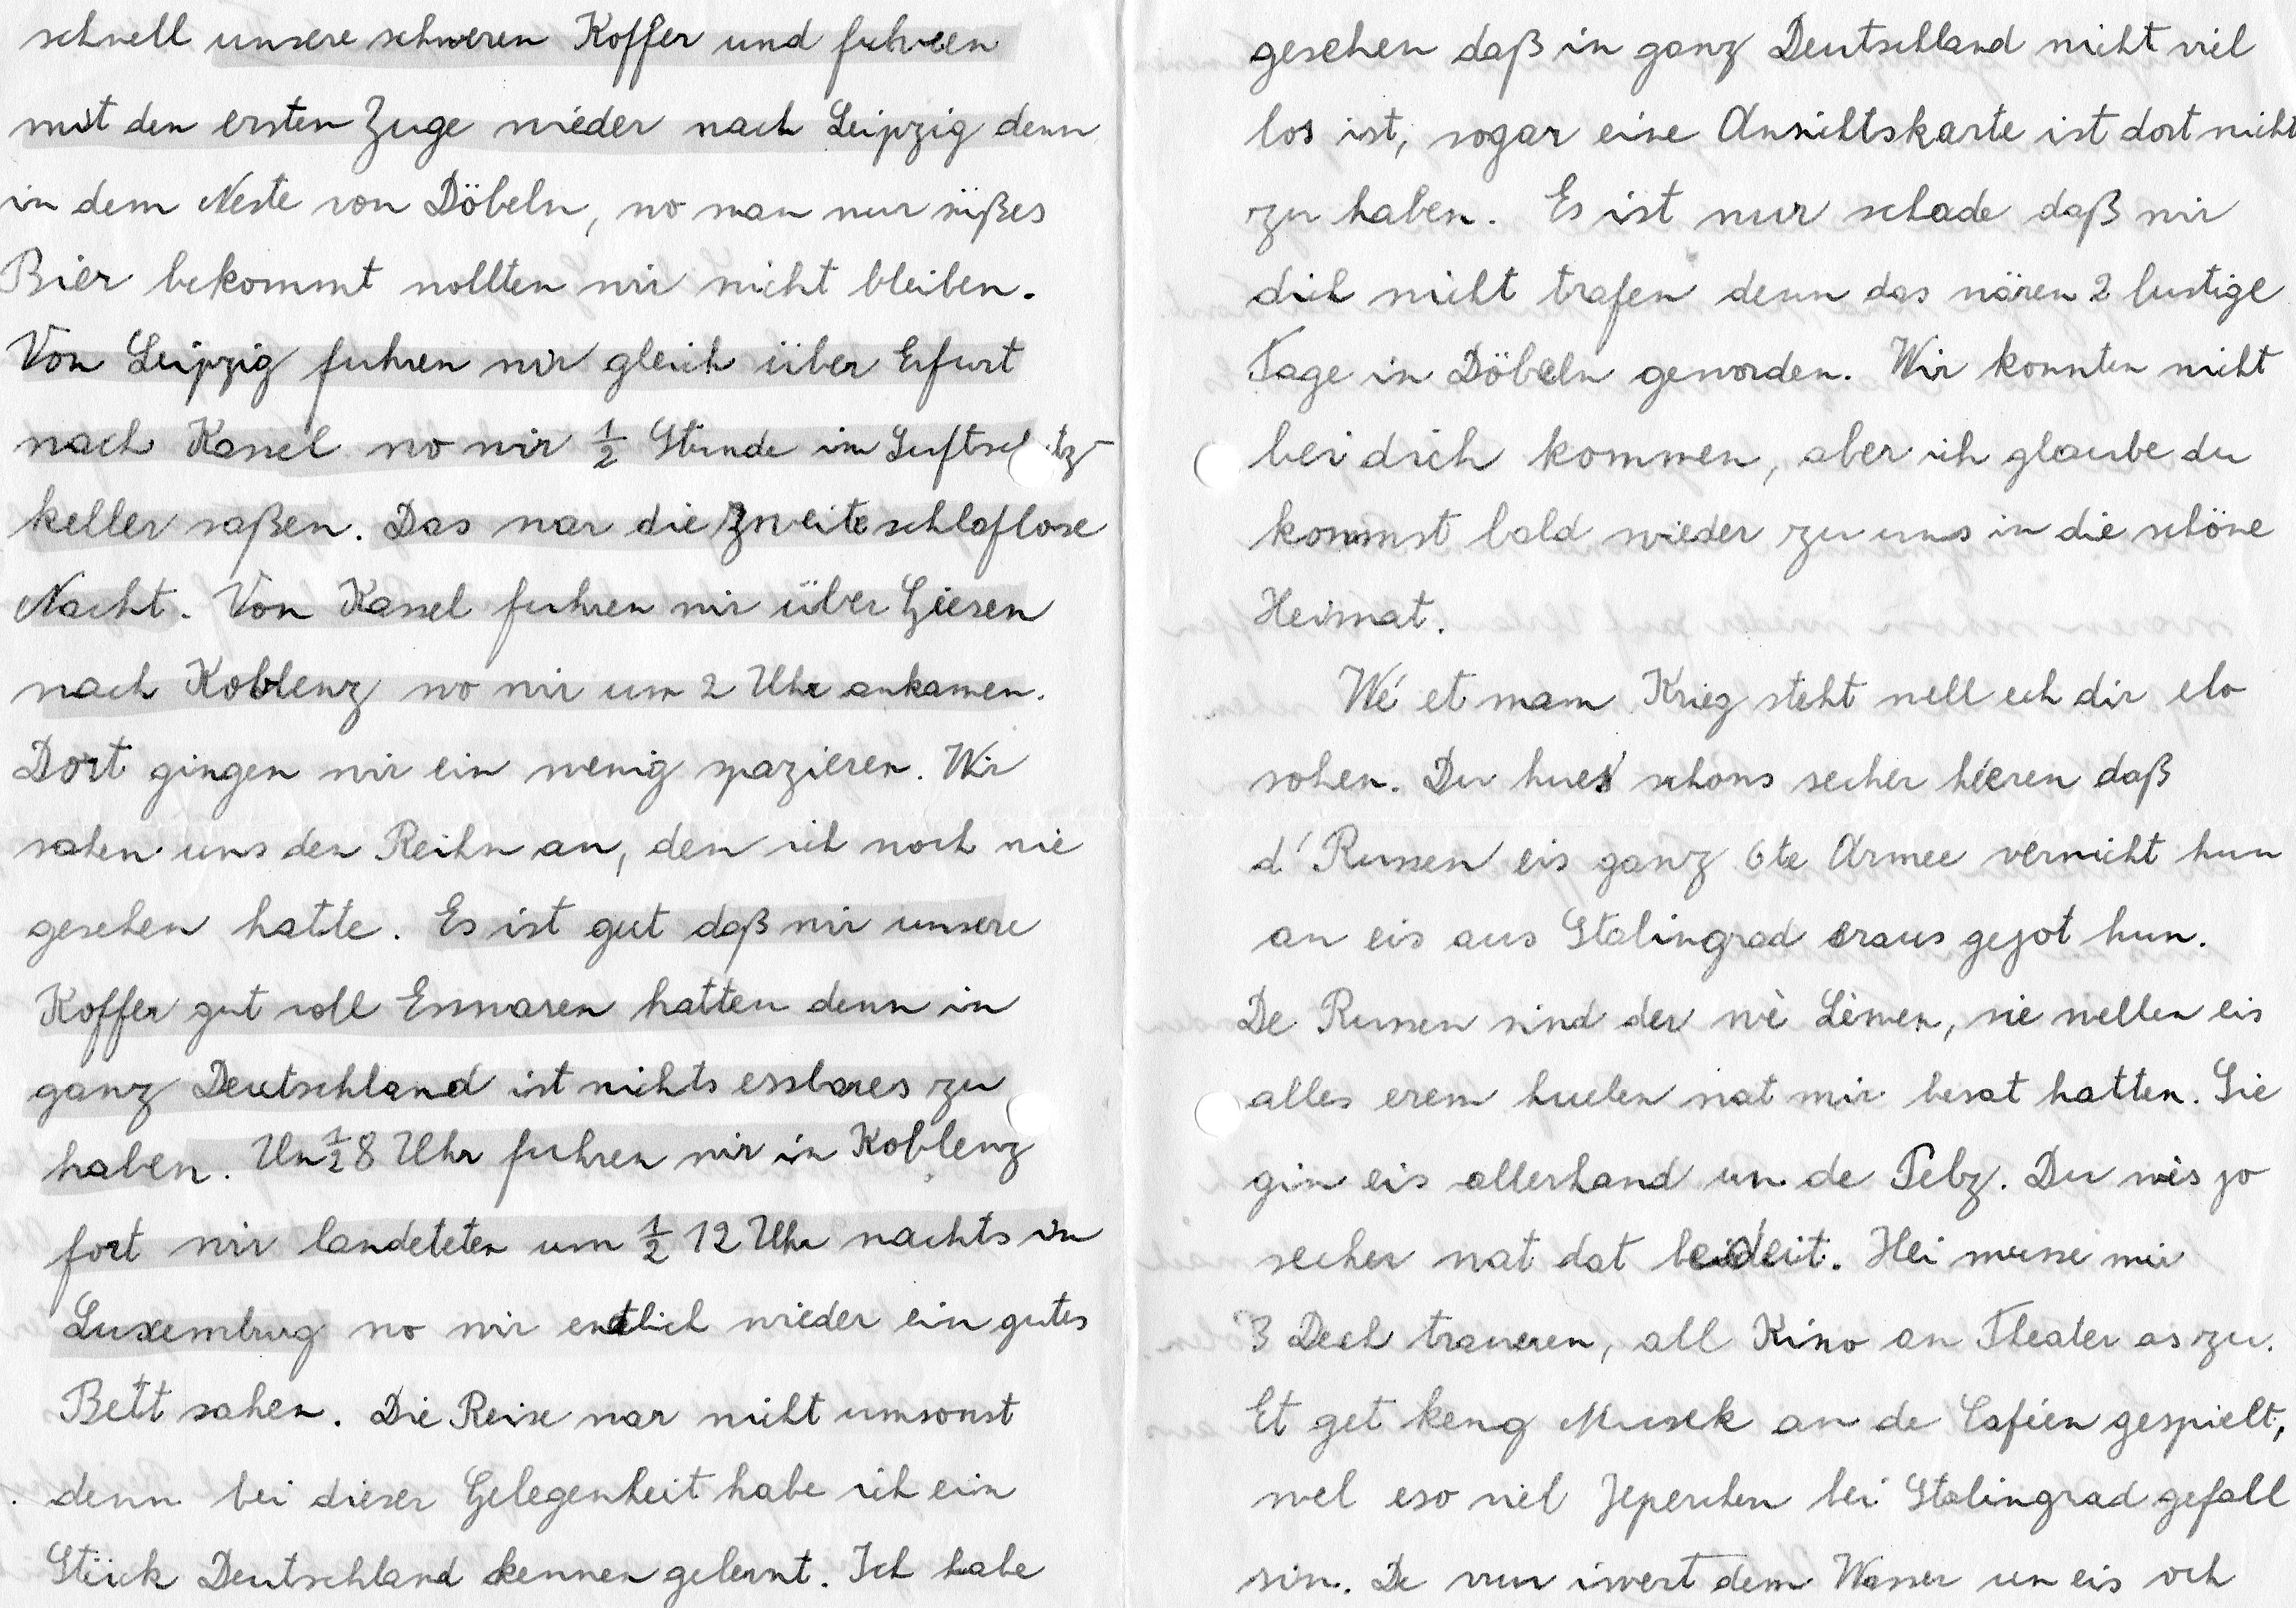 schnell unsere schweren Koffer und fuhren
mit den ersten Zuge wieder nach Leipzig denn
in dem Neste von Döbeln, wo man nur süßes
Bier bekommt wollten wir nicht bleiben.
Von Leipzig fuhren wir gleich über Erfurt
nach Kassel wo wir ½ Stunde im Luftsch tz-
keller saßen. Das war die zweite schlaflose
Nacht. Von Kassel fuhren wir über Giesen
nach Koblenz wo wir um 2 Uhr ankamen.
Dort gingen wir ein wenig spazieren. Wir
sahen uns den Reihn an, den ich noch nie
gesehen hatte. Es ist gut daß wir unsere
Koffer gut voll Esswaren hatten denn in
ganz Deutschland ist nichts essbares zu
haben. Um ½ 8 Uhr fuhren wir in Koblenz
fort wir landeteten um ½ 12 Uhr nachts in
Luxemburg wo wir endlich wieder ein gutes
Bett sahen. Die Reise war nicht umsonst
denn bei dieser Gelegenheit habe ich ein
Stück Deutschland kennen gelernt. Ich habe
gesehen daß in ganz Deutschland nicht viel
los ist, sogar eine Ansichtskarte ist dort nicht
zu haben. Es ist nur schade daß wir
dich nicht trafen denn das wären 2 lustige
Tage in Döbeln geworden. Wir konnten nicht
bei dich kommen, aber ich glaube du
kommst bald wieder zu uns in die schöne
Heimat.
Wé et mam Krieg steht well ech dir elo
sohen. Du hues schons secher hieren daß
d' Russen eis ganz 6te Armee vernicht hun
an eis aus Stalingrad eraus gejot hun.
De Russen sind der wè Lèwen, sie wellen eis
alles erem huelen wat mir besat hatten. Sie
gin eis allerhand un de Pelz. Du wès jo
secher wat dat beideit. Hei musse mir
3 Dech traueren, all Kino an Theater as zu.
Et get keng Musek an de Caféen gespielt,
wel eso viel Jeperchen bei Stalingrad gefall
sin. De vun iwert dem Wasser un eis och